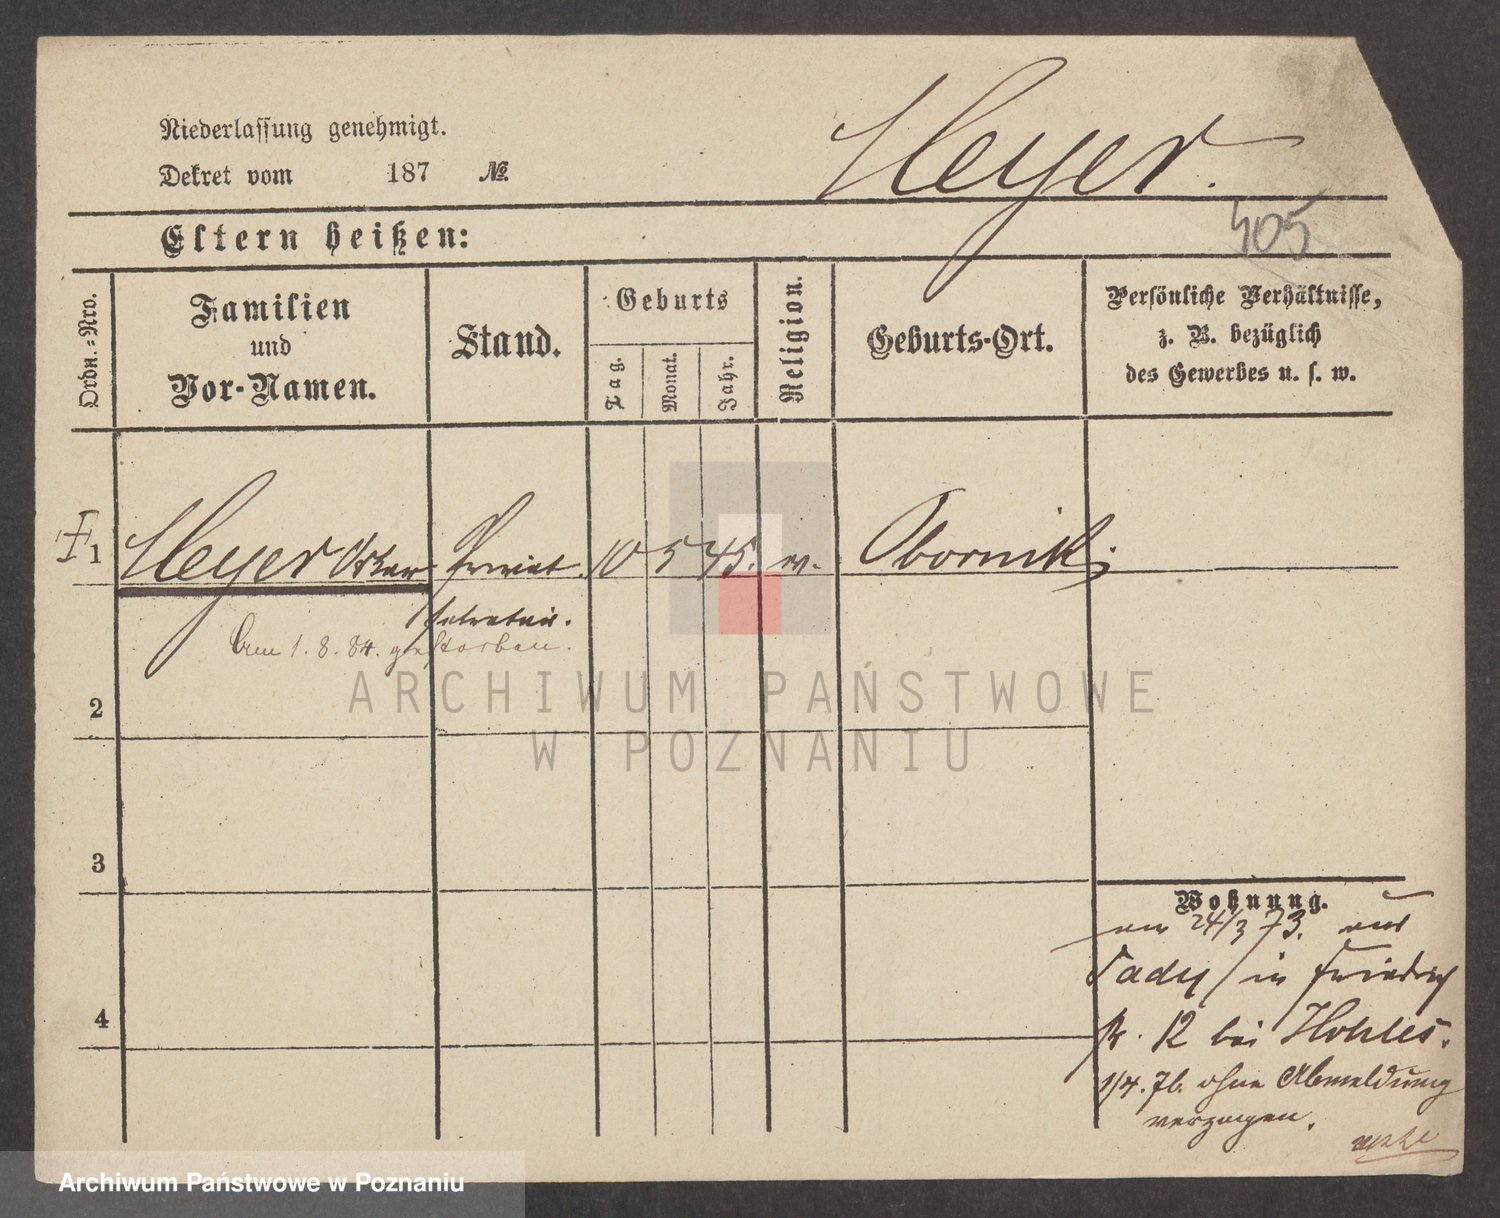 Niederlassung genehmigt.
Dekret vom 187 №
Heyer.
405
Eltern heißen:
Ordn.-Nro.
Familien und Vor-Namen.
Stand.
Geburts
Tag.
Monat.
Jahr.
Religion.
Geburts-Ort.
Persönliche Verhältnisse,
z. B. bezüglich
des Gewerbes u. s. w.
1 Heyer Oskar Privat 10 5 45. Obornik.
sekretair.
Am 1. 8. 84. gestorben.
2
3
4
Wohnung.
24/3 73. aus
in Friedrich
str. 12 bei
1/4. 76. ohne Abmeldung
verzogen.
ARCHIWUM PAŃSTWOWE
W POZNANIU
Archiwum Państwowe w Poznaniu